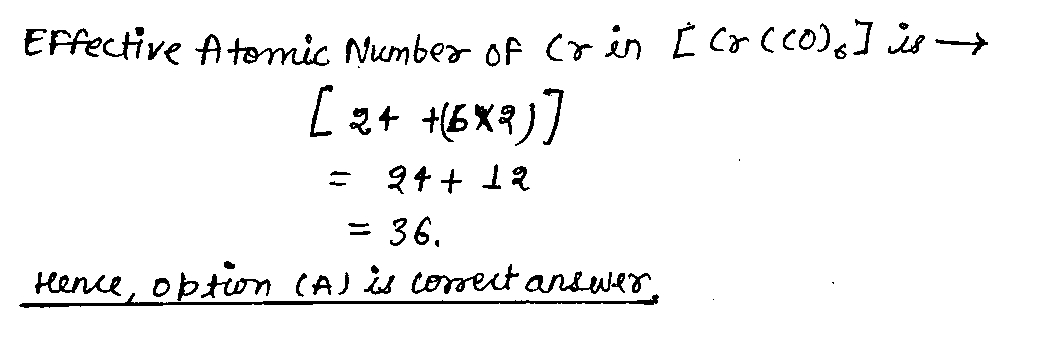 Effective Atomic Number of Cr in [Cr(CO)₆] is →
[24 + (6×2)]
= 24 + 12
= 36.
Hence, option (A) is correct answer.